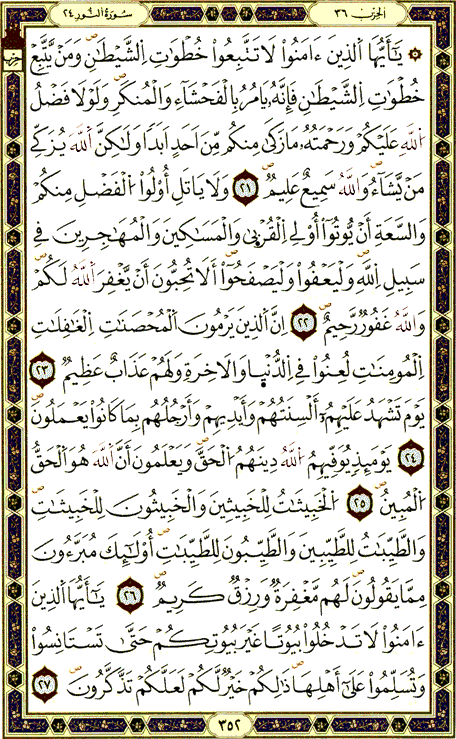 سُورَةُ النُّور ٢٤
الحِزْب ٣٦
حزب
يَٰٓأَيُّهَا اَ۬لذِينَ ءَامَنُواْ لَا تَتَّبِعُواْ خُطْوَٰتِ اِ۬لشَّيْطَٰنِۖ وَمَنْ يَّتَّبِعْ
خُطْوَٰتِ اِ۬لشَّيْطَٰنِ فَإِنَّهُۥ يَامُرُ بِالْفَحْشَآءِ وَالْمُنكَرِۖ وَلَوْلَا فَضْلُ
اُ۬للَّهِ عَلَيْكُمْ وَرَحْمَتُهُۥ مَا زَكَىٰ مِنكُم مِّنَ اَحَدٍ اَبَداٗ وَلَٰكِنَّ اَ۬للَّهَ يُزَكِّے
مَنْ يَّشَآءُۖ وَاللَّهُ سَمِيعٌ عَلِيمٞۖ ٢١ وَلَا يَاتَلِ أُوْلُواْ اُ۬لْفَضْلِ مِنكُمْ
وَالسَّعَةِ أَنْ يُّوتُوٓاْ أُوْلِے اِ۬لْقُرْب۪ىٰ وَالْمَسَٰكِينَ وَالْمُهَٰجِرِينَ فِے
سَبِيلِ اِ۬للَّهِۖ وَلْيَعْفُواْ وَلْيَصْفَحُوٓاْۖ أَلَا تُحِبُّونَ أَنْ يَّغْفِرَ اَ۬للَّهُ لَكُمْۖ
وَاللَّهُ غَفُورٞ رَّحِيمٌۖ ٢٢ اِنَّ اَ۬لذِينَ يَرْمُونَ اَ۬لْمُحْصَنَٰتِ اِ۬لْغَٰفِلَٰتِ
اِ۬لْمُومِنَٰتِ لُعِنُواْ فِے اِ۬لدُّنْي۪ا وَالَاخِرَةِ وَلَهُمْ عَذَابٌ عَظِيمٞ ٢٣
يَوْمَ تَشْهَدُ عَلَيْهِمُۥٓ أَلْسِنَتُهُمْ وَأَيْدِيهِمْ وَأَرْجُلُهُم بِمَا كَانُواْ يَعْمَلُونَۖ
٢٤ يَوْمَئِذٖ يُوَفِّيهِمُ اُ۬للَّهُ دِينَهُمُ اُ۬لْحَقَّۖ وَيَعْلَمُونَ أَنَّ اَ۬للَّهَ هُوَ اَ۬لْحَقُّ
اُ۬لْمُبِينُۖ ٢٥ اُ۬لْخَبِيثَٰتُ لِلْخَبِيثِينَ وَالْخَبِيثُونَ لِلْخَبِيثَٰتِۖ
وَالطَّيِّبَٰتُ لِلطَّيِّبِينَ وَالطَّيِّبُونَ لِلطَّيِّبَٰتِۖ أُوْلَٰٓئِكَ مُبَرَّءُونَ
مِمَّا يَقُولُونَۖ لَهُم مَّغْفِرَةٞ وَرِزْقٞ كَرِيمٞۖ ٢٦ يَٰٓأَيُّهَا اَ۬لذِينَ
ءَامَنُواْ لَا تَدْخُلُواْ بُيُوتاً غَيْرَ بُيُوتِكُمْ حَتَّىٰ تَسْتَانِسُواْ
وَتُسَلِّمُواْ عَلَىٰٓ أَهْلِهَاۖ ذَٰلِكُمْ خَيْرٞ لَّكُمْ لَعَلَّكُمْ تَذَّكَّرُونَۖ ٢٧
٣٥٢